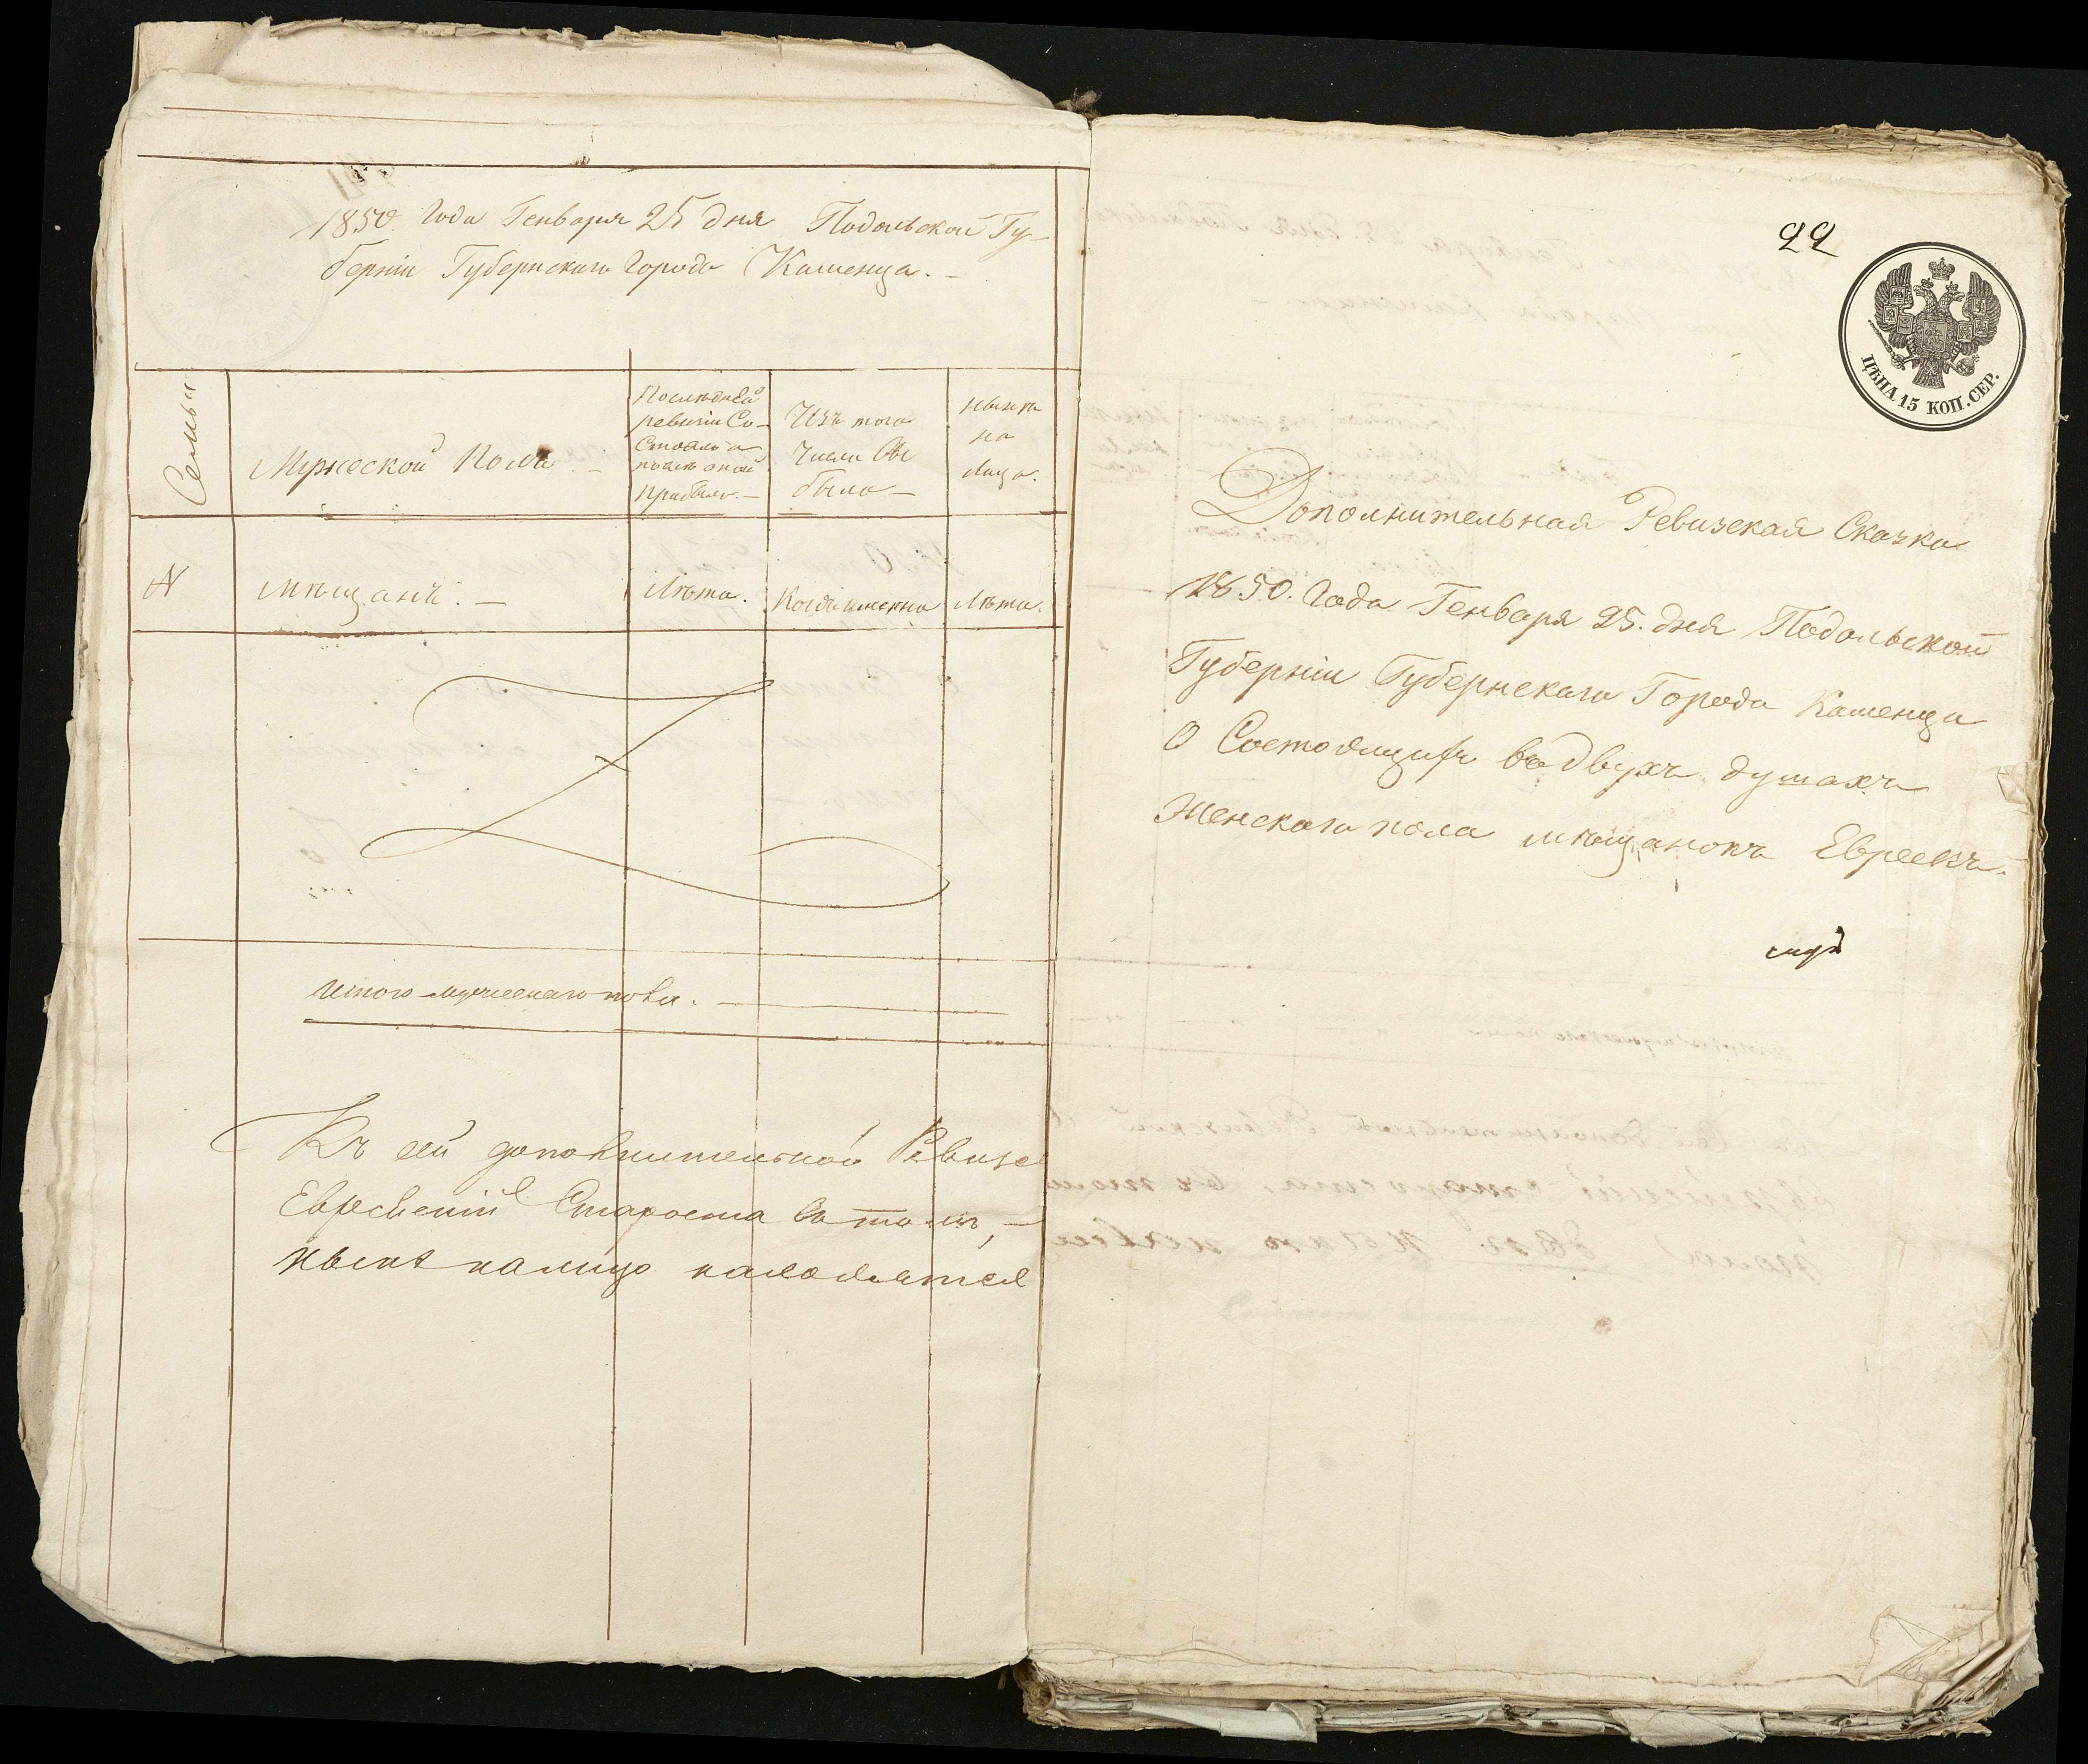 1850. Года Генваря 25 дня Подольской Гу-
берніи Губернскаго Города Каменца.
Семьи
Мужеской Полъ
Последней
ревизіи Со-
стояло и
после оной
прибыло.
Изъ того
Числа Вы
было
ныне
на
лицо.
N
мещанъ.
Лѣта.
Когда именно
Лѣта.
итого мужескаго пола.
Къ сей дополнительной Ревизс
Еврейскій Староста въ томъ,
ныне налицо находятся
22
ЦѢНА 15 КОП. СЕР.
Дополнительная Ревизская Сказка
1850. Года Генваря 25. дня Подольской
Губерніи Губернскаго Города Каменца
О Состоящихъ въ двухъ душахъ
Женскаго пола мѣщанокъ Евреекъ.